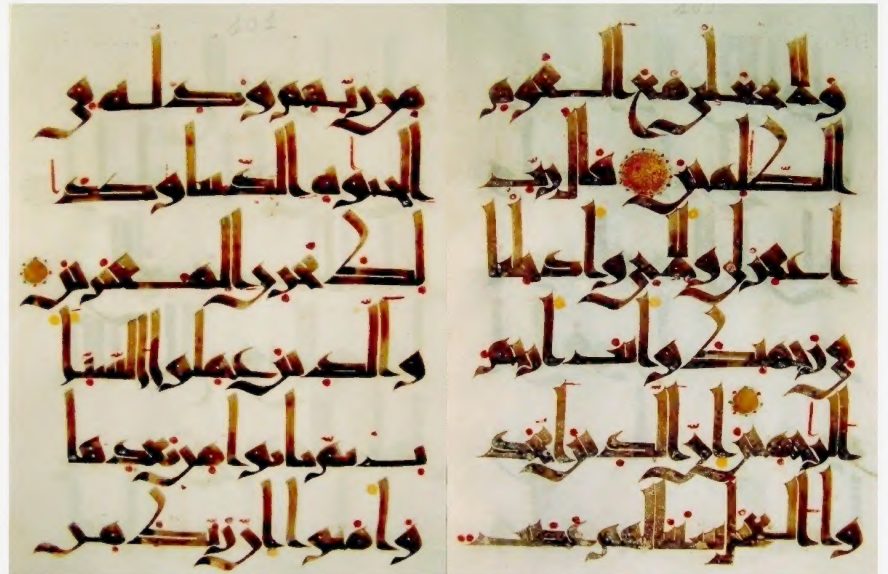 ولا تجعلني مع القوم
الظلمين قال رب
اغفر لي ولاخي وادخلنا
في رحمتك وانت ارحم
الرحمين ان الذين اتخذ
وا العجل سينالهم غضب
من ربهم وذلة في
الحيوة الدنيا وكذا
لك نجزي المفترين
والذين عملوا السيئا
ت ثم تابوا من بعدها
وامنوا ان ربك من